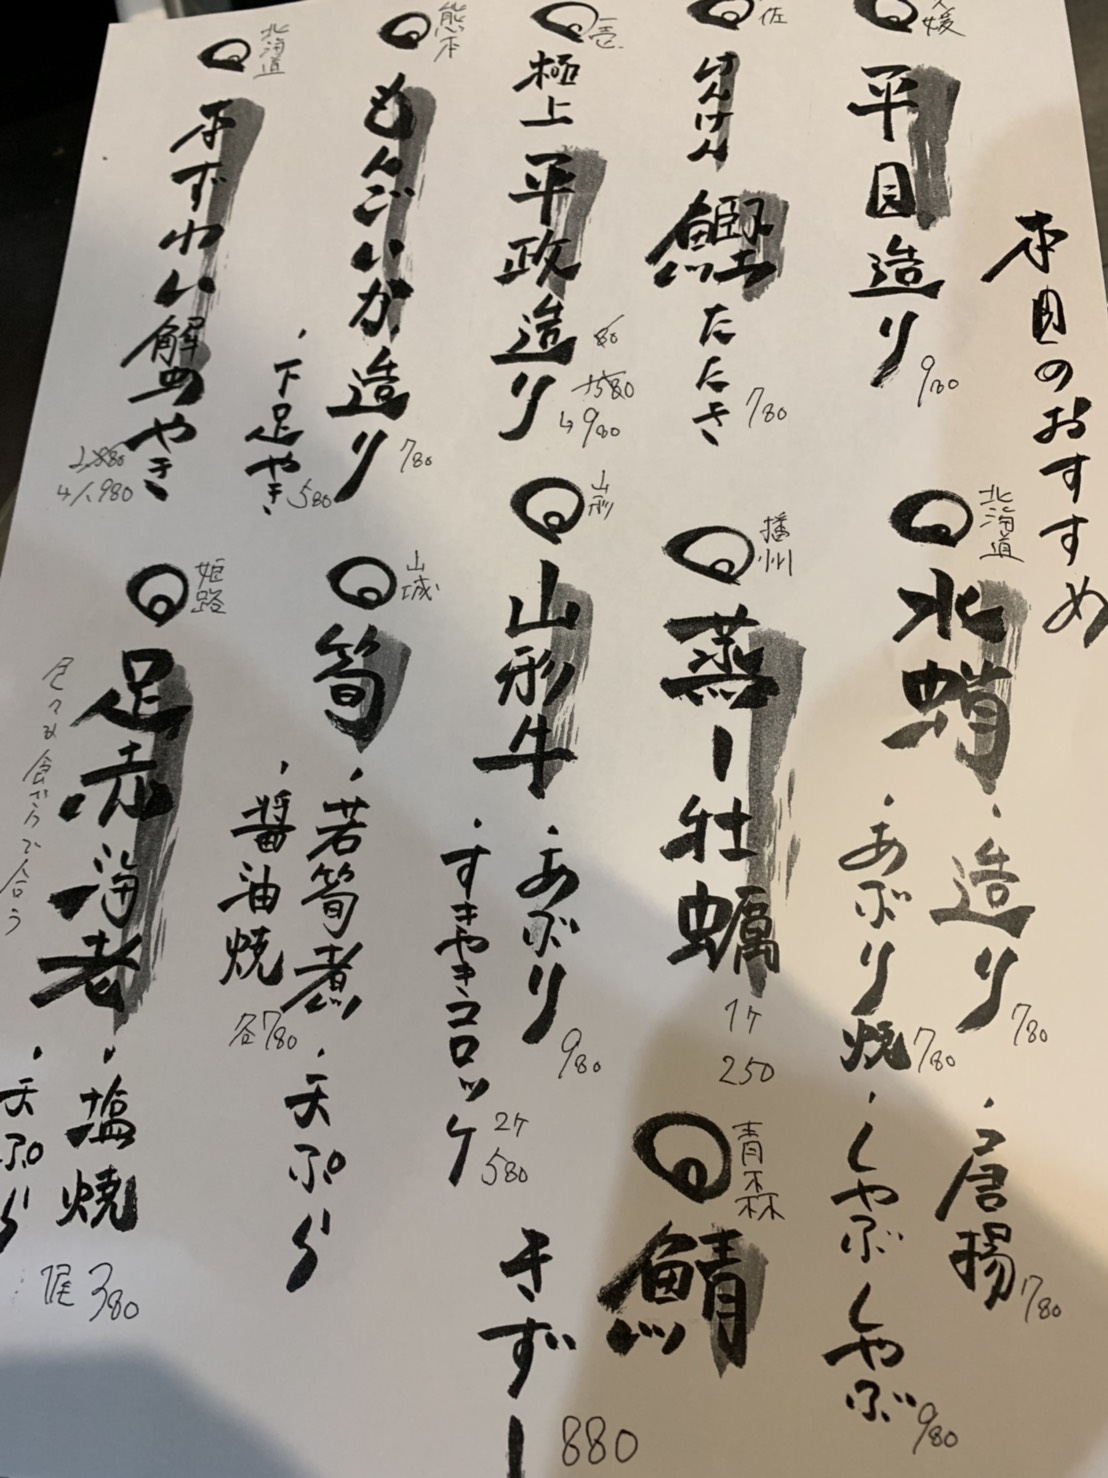 本日のおすすめ
平目造り
980
佐
けんけん
鰹たたき
780
壱
極上
平政造り
1580
↳980
熊本
もんごいか造り
780
・下足やき
580
北海道
本ずわい蟹みやき
↳1,980
北海道
水蛸
・造り
780
・唐揚
780
・あぶり焼
780
・しゃぶしゃぶ
980
播州
蒸し牡蠣
1ケ
250
青森
鯖
きずし
880
山形
山形牛
・あぶり
980
・すきやきコロッケ
2ケ
580
山城
筍
・若筍煮
・天ぷら
・醤油焼
各780
姫路
足赤海老
・塩焼
・天ぷら
1尾 380